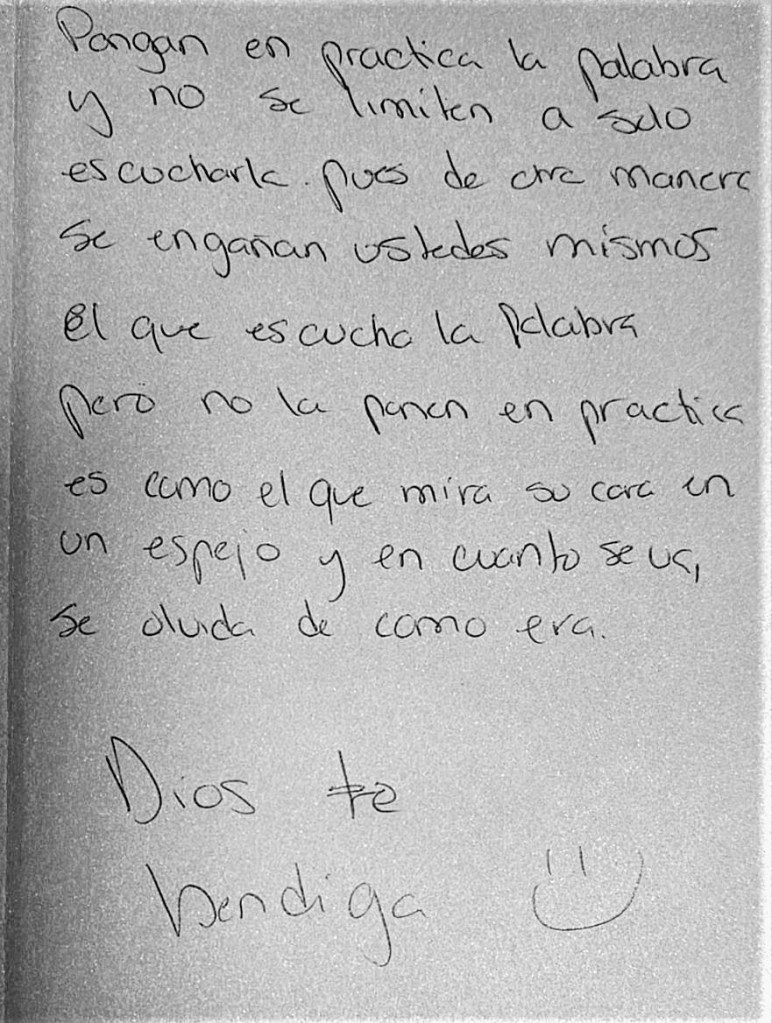 Pongan en practica la palabra
y no se limiten a solo
escucharla. pues de otra manera
se engañan ustedes mismos
el que escucha la palabra
pero no la ponen en practica
es como el que mira su cara en
un espejo y en cuanto se va,
se olvida de como era.
Dios te
bendiga